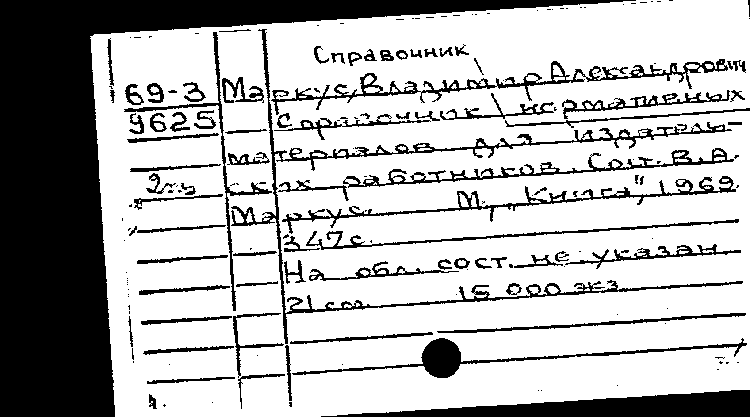 Справочник
69-3 Маркус, Владимир Александрович
9625 Справочник нормативных
материалов для издатель-
ских работников. Сост. В. А.
Маркус. М., „Книга", 1969.
347 с.
На обл. сост. не указан
21 см. 15 000 экз.